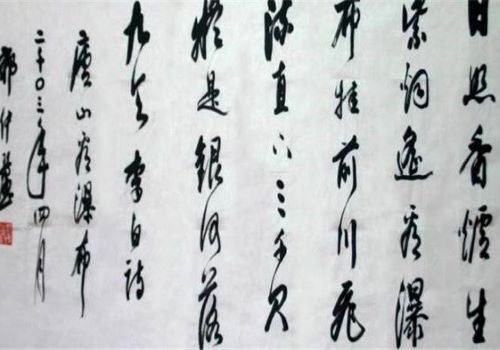 日照香爐生
紫烟遥看瀑
布挂前川飛
流直下三千尺
疑是銀河落
九天 李白詩
廬山看瀑布
二千〇三年四月